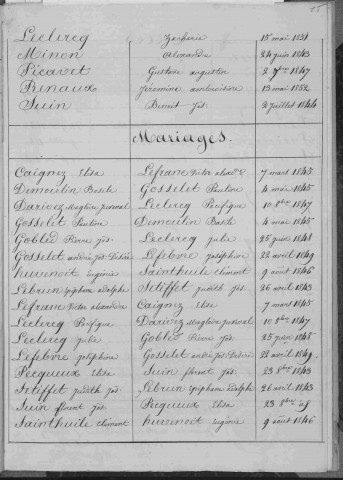 Leclercq Zerbine 15 mai 1851
Minon Alexandre 24 juin 1843
Picavet Gustave augustin 2 7bre 1847
Renaud Jeremine ambroisine 13 mai 1852
Suin Benoit Jos. 2 juillet 1844
Mariages.
Caignez Elisa Lefranc Victor alexdre 7 mars 1845
Demoulin Basile Gosselet Pauline 4 mai 1845
Darivez Magloire juvenal Leclercq Pacifique 10 8bre 1847
Gosselet Pauline Demoulin Basile 4 mai 1845
Goblet Pierre jos. Leclercq julie 25 juin 1841
Gosselet andré jos. Lefebvre joséphine 22 avril 1849
hurvnoit Eugénie Sainthuile Clément 9 août 1846
Lebrun Epiphane adolphe Istiffet judith jos. 26 avril 1843
Lefranc Victor alexandre Caignez Elisa 7 mars 1845
Leclercq Pacifique Darivez Magloire juvenal 10 8bre 1847
Leclercq julie Goblet Pierre jos. 25 juin
Lefebvre joséphine Gosselet andré jos. 22 avril 1849
Pecqueux Elisa Suin florent jos. 23 8bre 1843
Istiffet judith jos. Lebrun Epiphane adolphe 26 avril 1843
Suin florent jos. Pecqueux Elisa 23 8bre
Sainthuile Clément hurvnoit Eugénie 9 août 1846